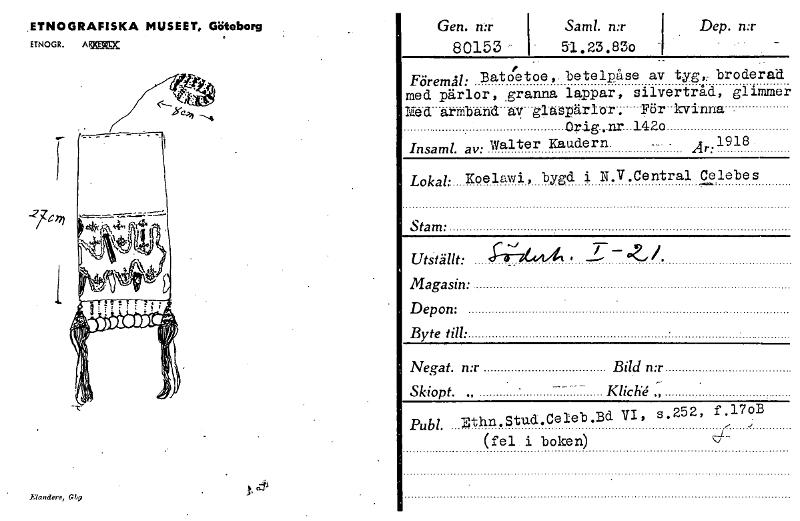 ETNOGRAFISKA MUSEET, Göteborg
ETNOGR.
8cm
27cm
Elanders, Gbg
Gen. n:r Saml. n:r Dep. n:r
80153 51.23.83o
Föremål: Batóetoe, betelpåse av tyg, broderad
med pärlor, granna lappar, silvertråd, glimmer
Med armband av glaspärlor. För kvinna
Orig.nr 142o
Insaml. av: Walter Kaudern År: 1918
Lokal: Koelawi, bygd i N.V.Central Celebes
Stam:
Utställt: Söderh. I-21.
Magasin:
Depon:
Byte till:
Negat. n:r Bild n:r
Skiopt. „ Kliché „
Publ. Ethn.Stud.Celeb.Bd VI, s.252, f.17oB
(fel i boken)